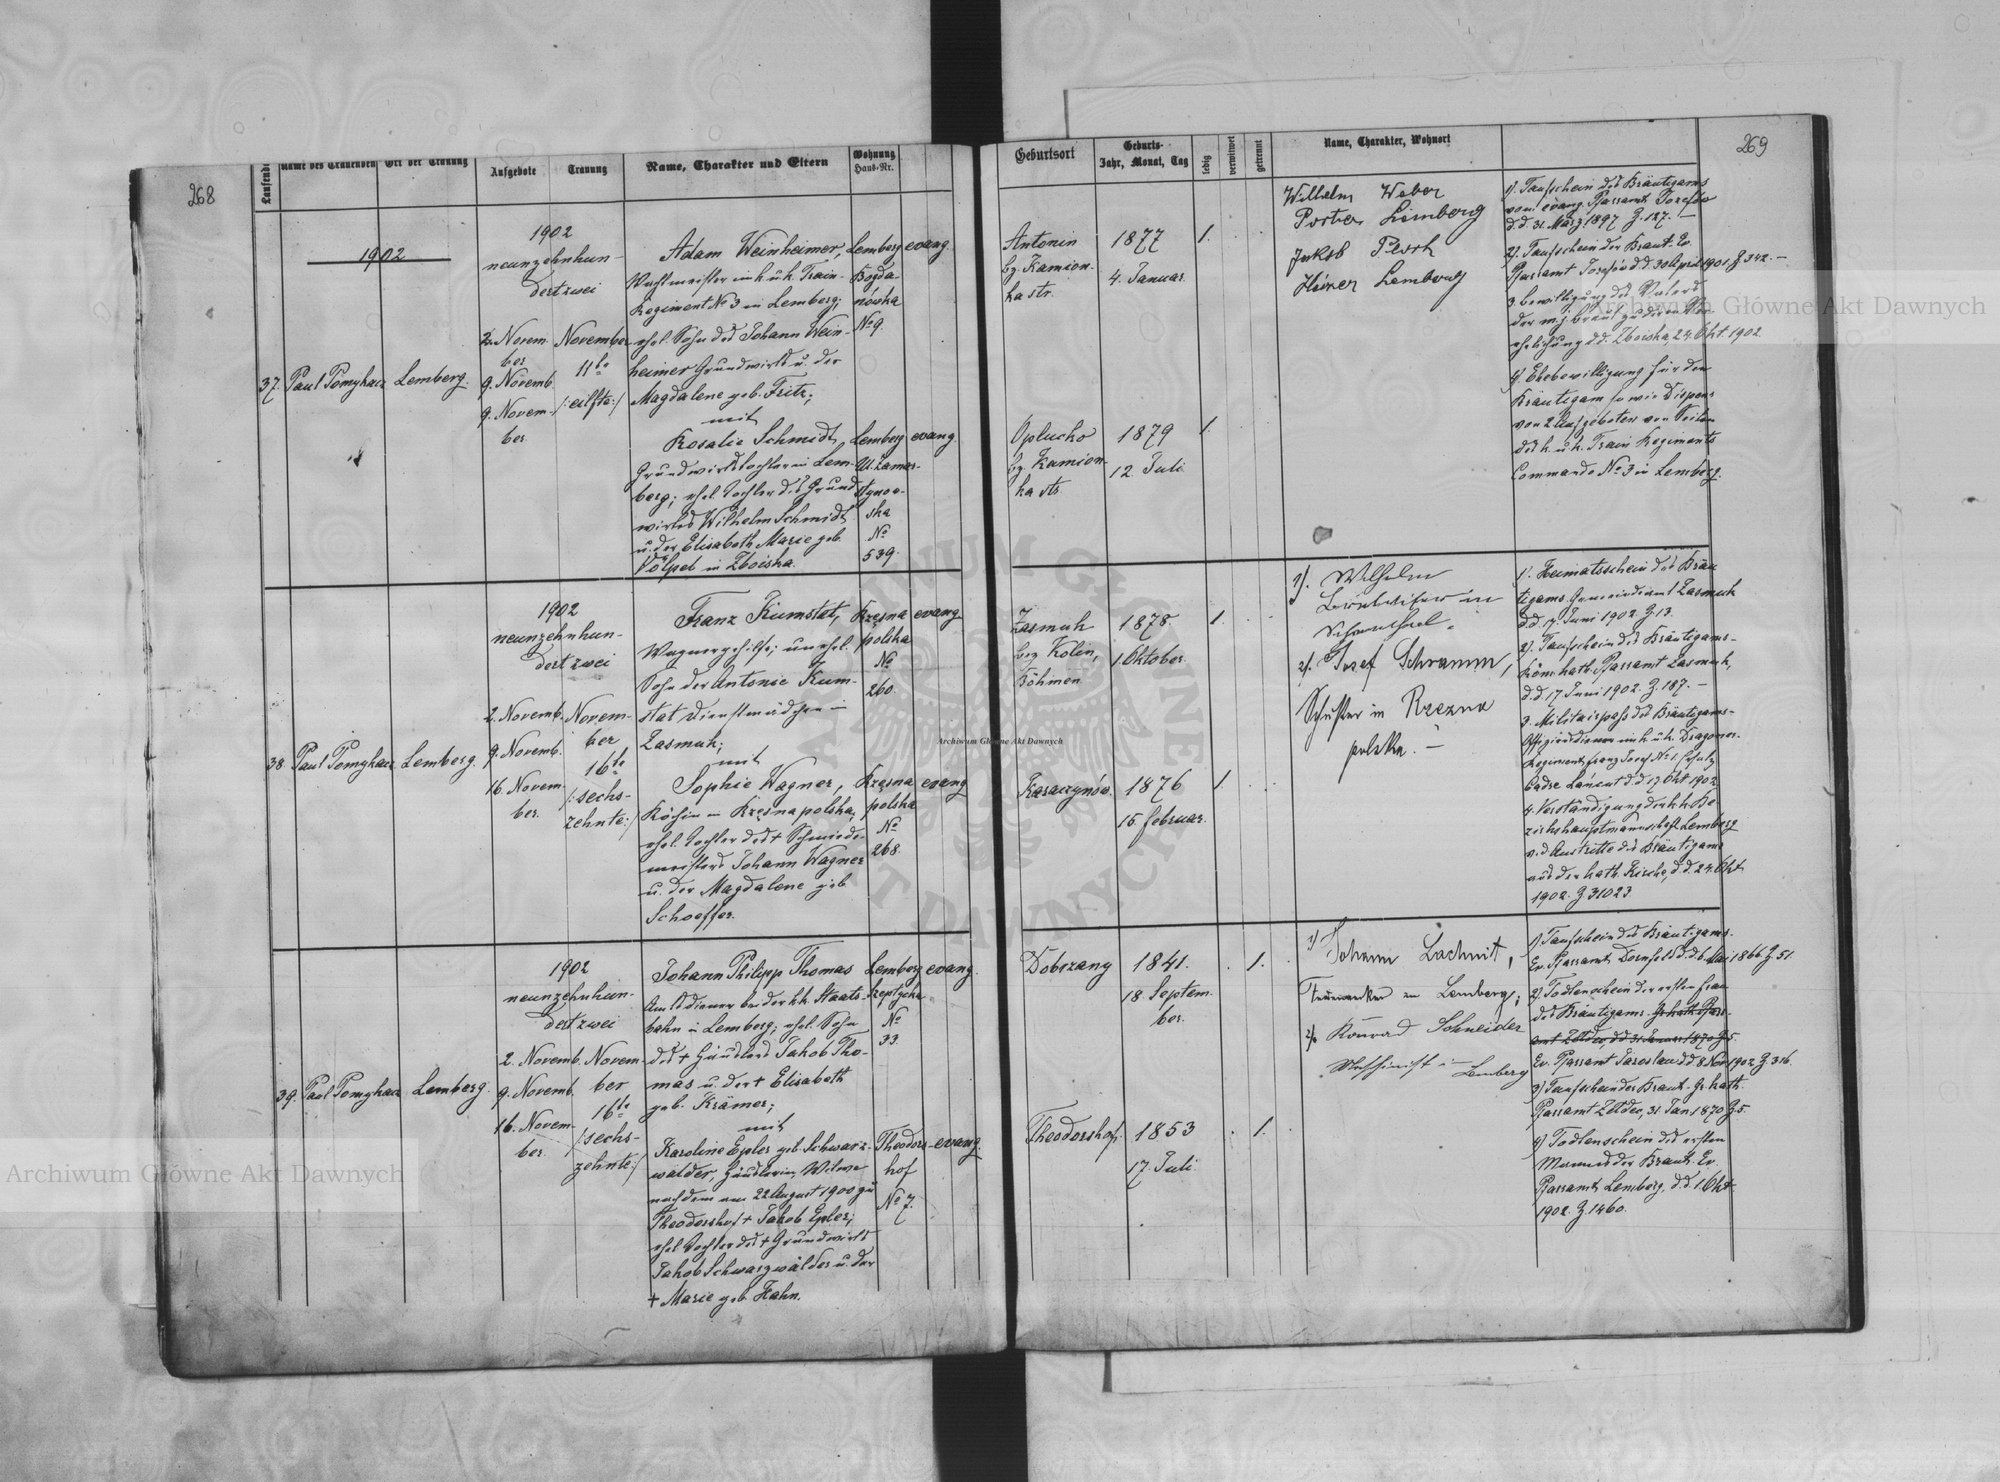 268
Laufende
Name des Trauenden
Ort der Trauung
Aufgebote
Trauung
Name, Charakter und Eltern
Wohnung
Haus-Nr.
1902
37.
Paul Pomykacz
Lemberg.
1902
neunzehnhun-
dertzwei
2. Novem-
ber
9. Novemb.
9. Novem-
ber.
November
11te
/:eilfte:/
Adam Weinheimer,
Wachtmeister im k. u. k. Train-
Regiment No 3 in Lemberg;
ehel. Sohn des Johann Wein-
heimer Grundwirth u. der
Magdalene geb. Fritz;
mit
Rosalie Schmidt,
Grundwirthstochter in Lem-
berg; ehel. Tochter des Grund-
wirthes Wilhelm Schmidt
u. der Elisabeth Marie geb.
Völpel in Zboiska.
Lemberg
Bogda-
nówka
No 9.
Lemberg
Ul. Zamar-
stynow-
ska
No
539.
evang.
evang.
38.
Paul Pomykacz
Lemberg.
1902
neunzehnhun-
dertzwei
2. Novemb.
9. Novemb.
16. Novem-
ber.
Novem-
ber
16te
/:sechs-
zehnte:/
Franz Kumstat,
Wagnergehilfe; unehel.
Sohn der Antonie Kum-
stat Dienstmädchen in
Zasmuk;
mit
Sophie Wagner,
Köchin in Krzesna polska,
ehel. Tochter des + Schmiede-
meisters Johann Wagner
u. der Magdalene geb.
Schoeffer.
polska
No
260.
polska
No
268
evang.
evang.
39.
Paul Pomykacz
Lemberg.
1902
neunzehnhun-
dertzwei
2. Novemb.
9. Novemb.
16. Novem-
ber.
Novem-
ber
16te
/:sechs-
zehnte:/
Johann Philipp Thomas
Amtsdiener bei der k.k. Staats-
bahn in Lemberg; ehel. Sohn
des + Häuslers Jakob Tho-
mas u. der + Elisabeth
geb. Krämer;
mit
Karoline Epler geb. Schwarz-
wälder, Häuslerin, Witwe
nach dem am 22 August 1900 zu
Theodorshof + Jakob Epler;
ehel. Tochter des + Grundwirts
Jakob Schwarzwälder u. der
+ Marie geb. Hahn.
Lemberg
Szeptycka
No
33.
Theodors-
hof
No 7.
evang.
evang.
269
Geburtsort
Geburts-
Jahr, Monat, Tag
ledig
verwitwet
getrennt
Name, Charakter, Wohnort
Antonin
bz. Kamion-
ka str.
1877
4. Januar.
1.
Wilhelm Weber
Portier Lemberg
Jakob
Lemberg
1). Taufschein des Bräutigams
vom evang. Pfarramt Josefow
d.d. 31. März 1897 Z. 127. —
2). Taufschein der Braut. Ev.
Pfarramt Josefów d.d. 30 April 1901 Z 342. —
3 bewilligung des Vaters
der m.j. Braut zu deren Ver-
ehelichung d.d. Zboiska, 24. Okt. 1902
4). Ehebewilligung für den
Bräutigam so wie Dispens
von 2 Aufgeboten von Seiten
des k. u. k. Train Regiments
Commando No 3 in Lemberg.
Oplucko
bz. Kamion-
ka str.
1879
12. Juli
1.
Zasmuk
bez. Kolin,
Böhmen
1878
1 Oktober.
1.
1). Wilhelm
in
2). Josef Schramm,
Schuster in Rzezna
polska. —
1). Heimatsschein des Bräu
tigams Gemeindeamt Zasmuk
d.d. 17. Juni 1902. Z. 13.
2). Taufschein des Bräutigams-
Röm. kath. Pfarramt Zasmuk,
d.d. 17 Juni 1902. Z. 187. —
3. Militairpaß des Bräutigams-
Offiziersdiener im k. u. k. Dragoner-
Regiment Franz Josef No 1.
cadre Lancut d.d. 17 Okt 1902
4. Verständigung der k.k. Be-
zirkshauptmannschaft Lemberg
v. d. Austritte des Bräutigams
aus der kath. Kirche, d.d. 24. Okt
1902. Z 31023
1876
15. Februar.
1.
Dobrzany
1841.
18. Septem-
ber.
1.
1) Johann Lachnit,
zu Lemberg;
2). Konrad Schneider
Maschinist in Lemberg
1) Taufschein des Bräutigams.
Ev. Pfarramt Dornfeld d.d. 6. Mai 1866. Z. 51.
2). Todtenschein der ersten Frau
des Bräutigams. Gr. kath. Pfarr-
amt Zoldec, d.d. 31. Januar 1870 Z. 5.
Ev. Pfarramt Jaroslau d.d. 8 Nov 1902 Z. 316.
3) Taufschein der Braut. Gr. kath.
Pfarramt Zoldec, 31. Jan. 1870 Z. 5.
4) Todtenschein des ersten
Mannes der Braut. Ev.
Pfarramt Lemberg, d.d. 1. Okt
1902. Z. 1460.
Theodorshof.
1853
17. Juli.
1.
Archiwum Główne Akt Dawnych
Archiwum Główne Akt Dawnych
Archiwum Główne Akt Dawnych